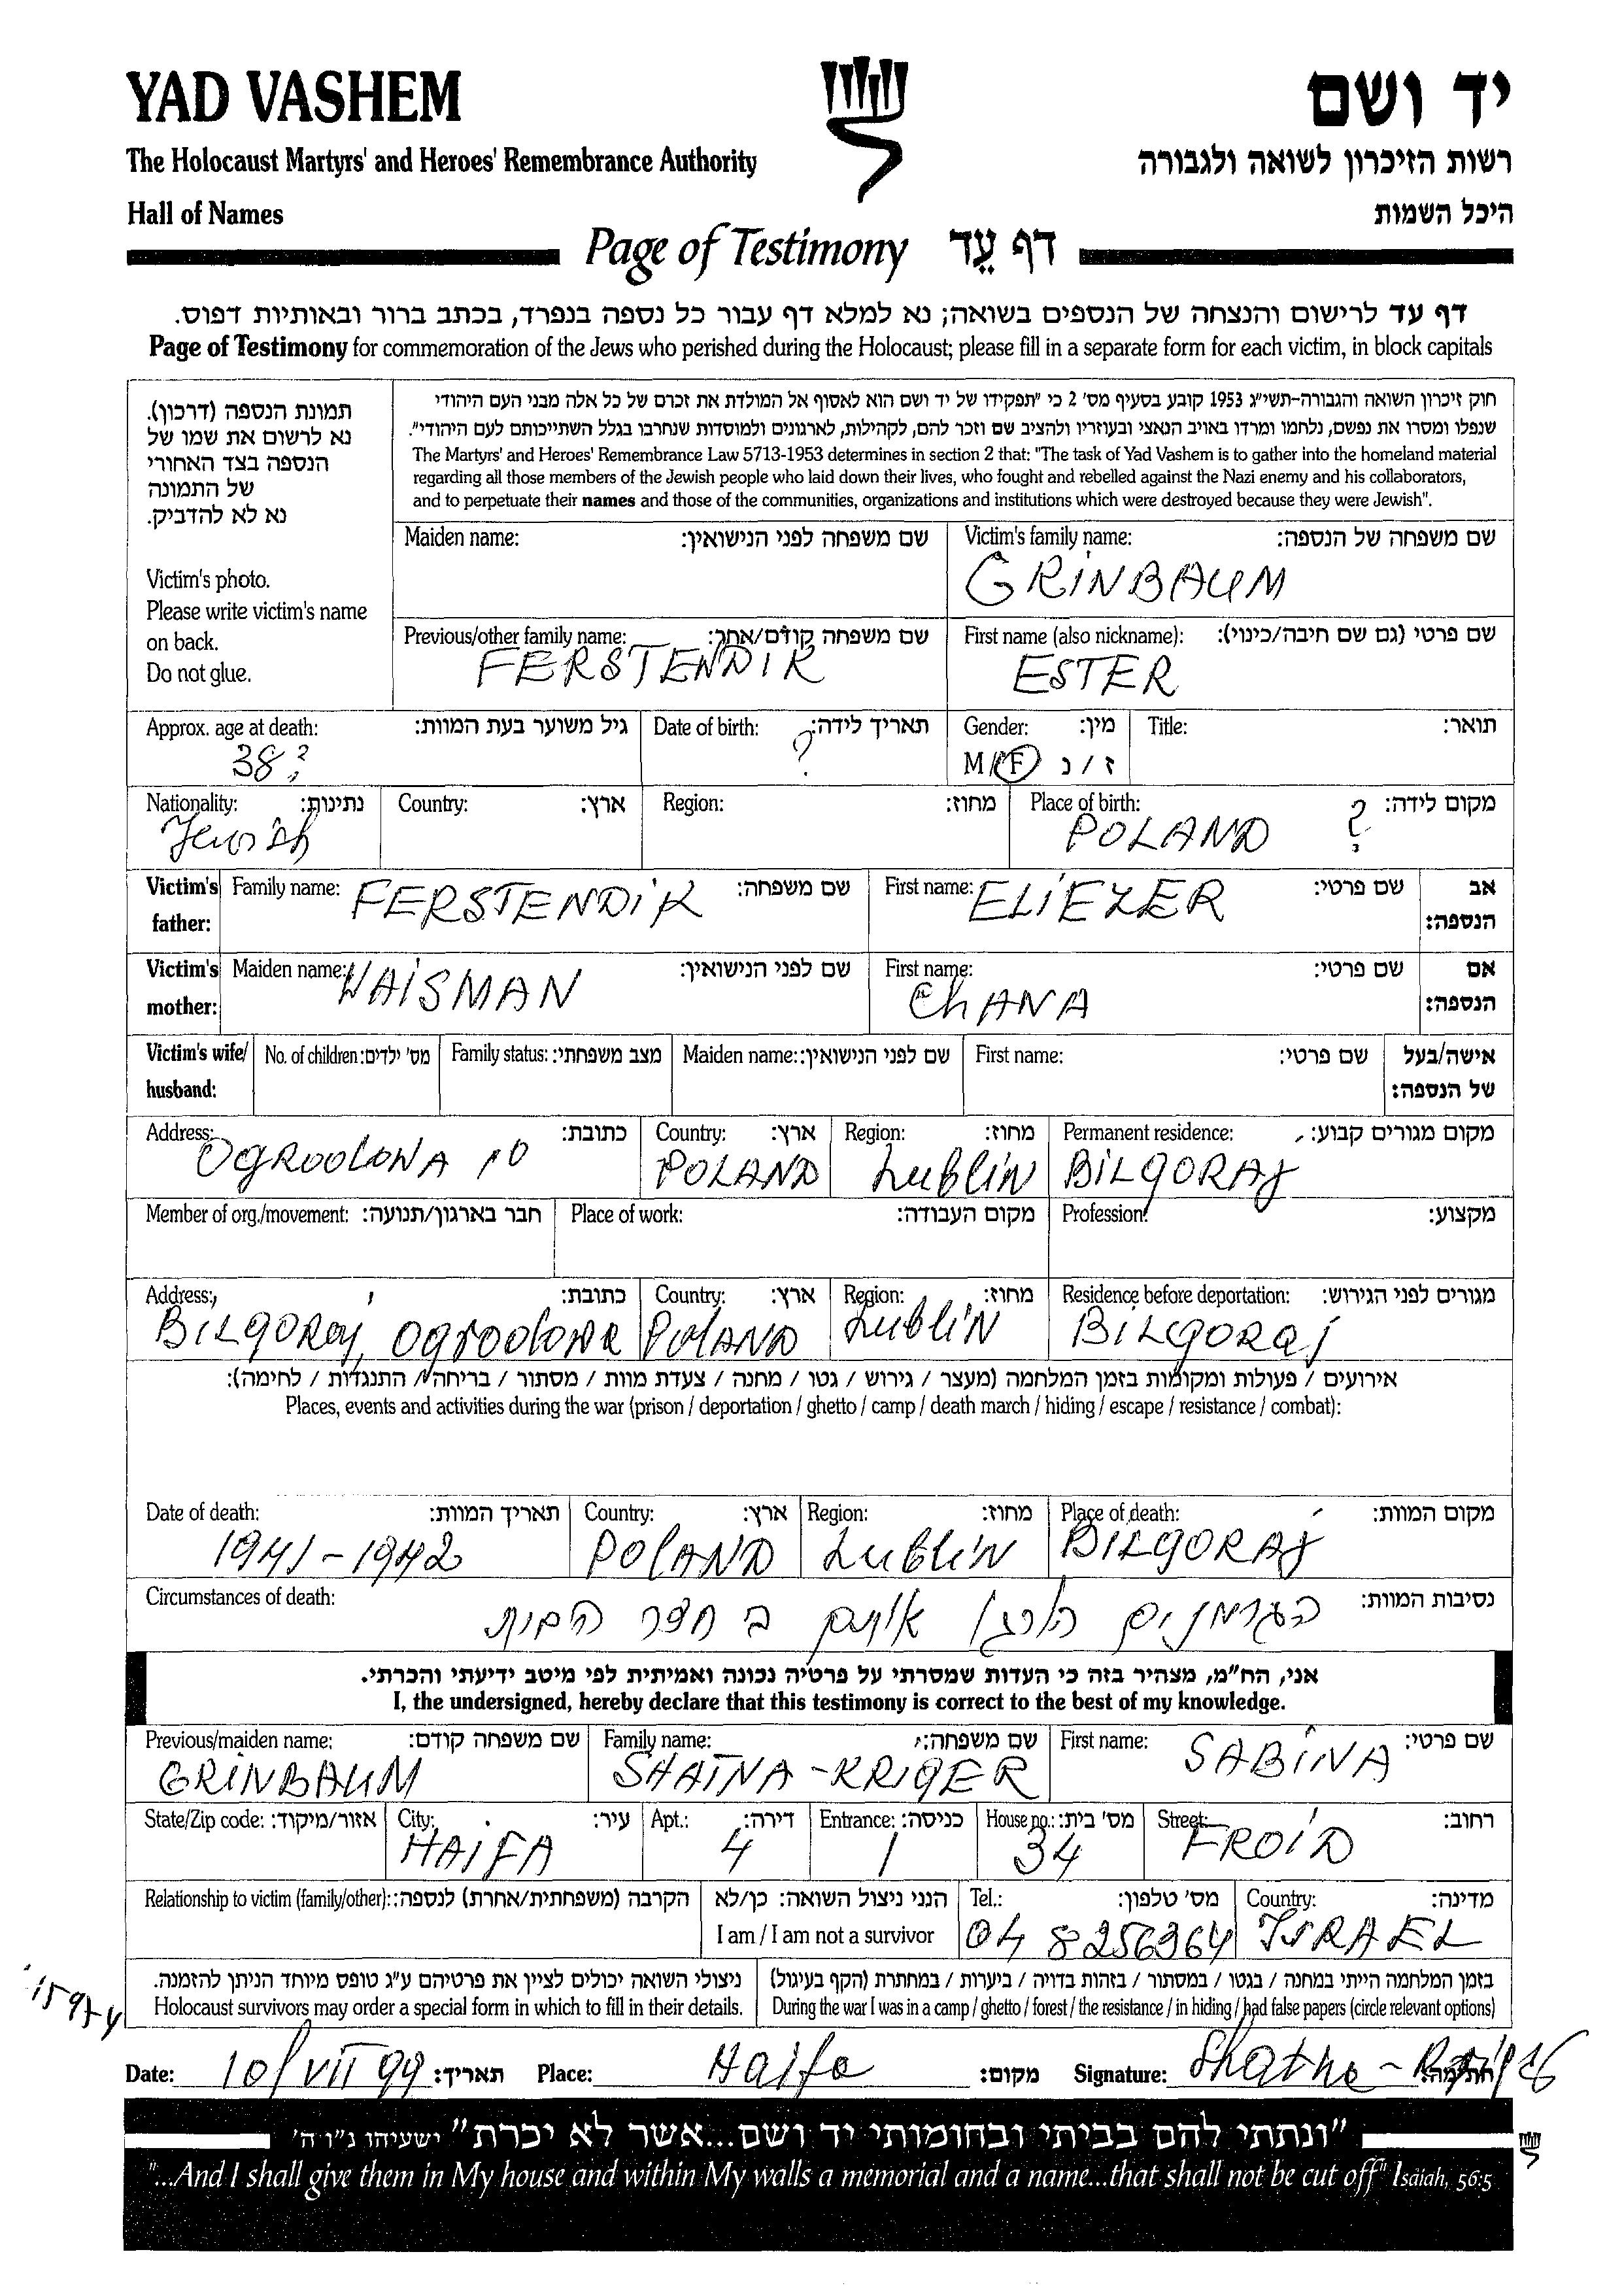 YAD VASHEM
יד ושם
The Holocaust Martyrs' and Heroes' Remembrance Authority
רשות הזיכרון לשואה ולגבורה
Hall of Names
היכל השמות
Page of Testimony דף עֵד
דף עד לרישום והנצחה של הנספים בשואה; נא למלא דף עבור כל נספה בנפרד, בכתב ברור ובאותיות דפוס.
Page of Testimony for commemoration of the Jews who perished during the Holocaust; please fill in a separate form for each victim, in block capitals
תמונת הנספה (דרכון).
נא לרשום את שמו של
הנספה בצד האחורי
של התמונה
נא לא להדביק.
Victim's photo.
Please write victim's name
on back.
Do not glue.
חוק זיכרון השואה והגבורה-תשי"ג 1953 קובע בסעיף מס' 2 כי "תפקידו של יד ושם הוא לאסוף אל המולדת את זכרם של כל אלה מבני העם היהודי
שנפלו ומסרו את נפשם, נלחמו ומרדו באויב הנאצי ובעוזריו ולהציב שם וזכר להם, לקהילות, לארגונים ולמוסדות שנחרבו בגלל השתייכותם לעם היהודי".
The Martyrs' and Heroes' Remembrance Law 5713-1953 determines in section 2 that: "The task of Yad Vashem is to gather into the homeland material
regarding all those members of the Jewish people who laid down their lives, who fought and rebelled against the Nazi enemy and his collaborators,
and to perpetuate their names and those of the communities, organizations and institutions which were destroyed because they were Jewish".
Maiden name: שם משפחה לפני הנישואין: Victim's family name: שם משפחה של הנספה:
GRINBAUM
Previous/other family name: שם משפחה קודם/אחר: First name (also nickname): שם פרטי (גם שם חיבה/כינוי):
FERSTENDIK ESTER
Approx. age at death: גיל משוער בעת המוות: Date of birth: תאריך לידה: Gender: מין: Title: תואר:
38? ? M/F ז / נ
Nationality: נתינות: Country: ארץ: Region: מחוז: Place of birth: מקום לידה:
Jewish POLAND ?
Victim's father: Family name: שם משפחה: First name: שם פרטי: אב הנספה:
FERSTENDIK ELIEZER
Victim's mother: Maiden name: שם לפני הנישואין: First name: שם פרטי: אם הנספה:
WAISMAN ChANA
Victim's wife/ husband: No. of children: מס' ילדים: Family status: מצב משפחתי: Maiden name: שם לפני הנישואין: First name: שם פרטי: אישה/בעל של הנספה:
Address: כתובת: Country: ארץ: Region: מחוז: Permanent residence: מקום מגורים קבוע:
OGRODOWA 10 POLAND Lublin BILGORAJ
Member of org./movement: חבר בארגון/תנועה: Place of work: מקום העבודה: Profession: מקצוע:
Address: כתובת: Country: ארץ: Region: מחוז: Residence before deportation: מגורים לפני הגירוש:
BILGORAJ, OGRODOWA POLAND Lublin BILGORAJ
אירועים / פעולות ומקומות בזמן המלחמה (מעצר / גירוש / גטו / מחנה / צעדת מוות / מסתור / בריחה / התנגדות / לחימה):
Places, events and activities during the war (prison / deportation / ghetto / camp / death march / hiding / escape / resistance / combat):
Date of death: תאריך המוות: Country: ארץ: Region: מחוז: Place of death: מקום המוות:
1941-1942 POLAND Lublin BILGORAJ
Circumstances of death: נסיבות המוות:
הגרמנים הרגו אותם ב חצר הבית
אני, הח"מ, מצהיר בזה כי העדות שמסרתי על פרטיה נכונה ואמיתית לפי מיטב ידיעתי והכרתי.
I, the undersigned, hereby declare that this testimony is correct to the best of my knowledge.
Previous/maiden name: שם משפחה קודם: Family name: שם משפחה: First name: שם פרטי:
GRINBAUM SHATNA-KRIGER SABINA
State/Zip code: אזור/מיקוד: City: עיר: Apt.: דירה: Entrance: כניסה: House no.: מס' בית: Street: רחוב:
HAIFA 4 1 34 FROID
Relationship to victim (family/other): הקרבה (משפחתית/אחרת) לנספה: הנני ניצול השואה: כן/לא Tel.: מס' טלפון: Country: מדינה:
I am / I am not a survivor 04 8256364 ISRAEL
ניצולי השואה יכולים לציין את פרטיהם ע"ג טופס מיוחד הניתן להזמנה. בזמן המלחמה הייתי במחנה / בגטו / במסתור / בזהות בדויה / ביערות / במחתרת (הקף בעיגול)
Holocaust survivors may order a special form in which to fill in their details. During the war I was in a camp / ghetto / forest / the resistance / in hiding / had false papers (circle relevant options)
Date: 10/VII 99 תאריך: Place: Haifa מקום: Signature: חתימה:
"ונתתי להם בביתי ובחומותי יד ושם...אשר לא יכרת" ישעיהו נ"ו ה'
"...And I shall give them in My house and within My walls a memorial and a name...that shall not be cut off" Isaiah, 56:5